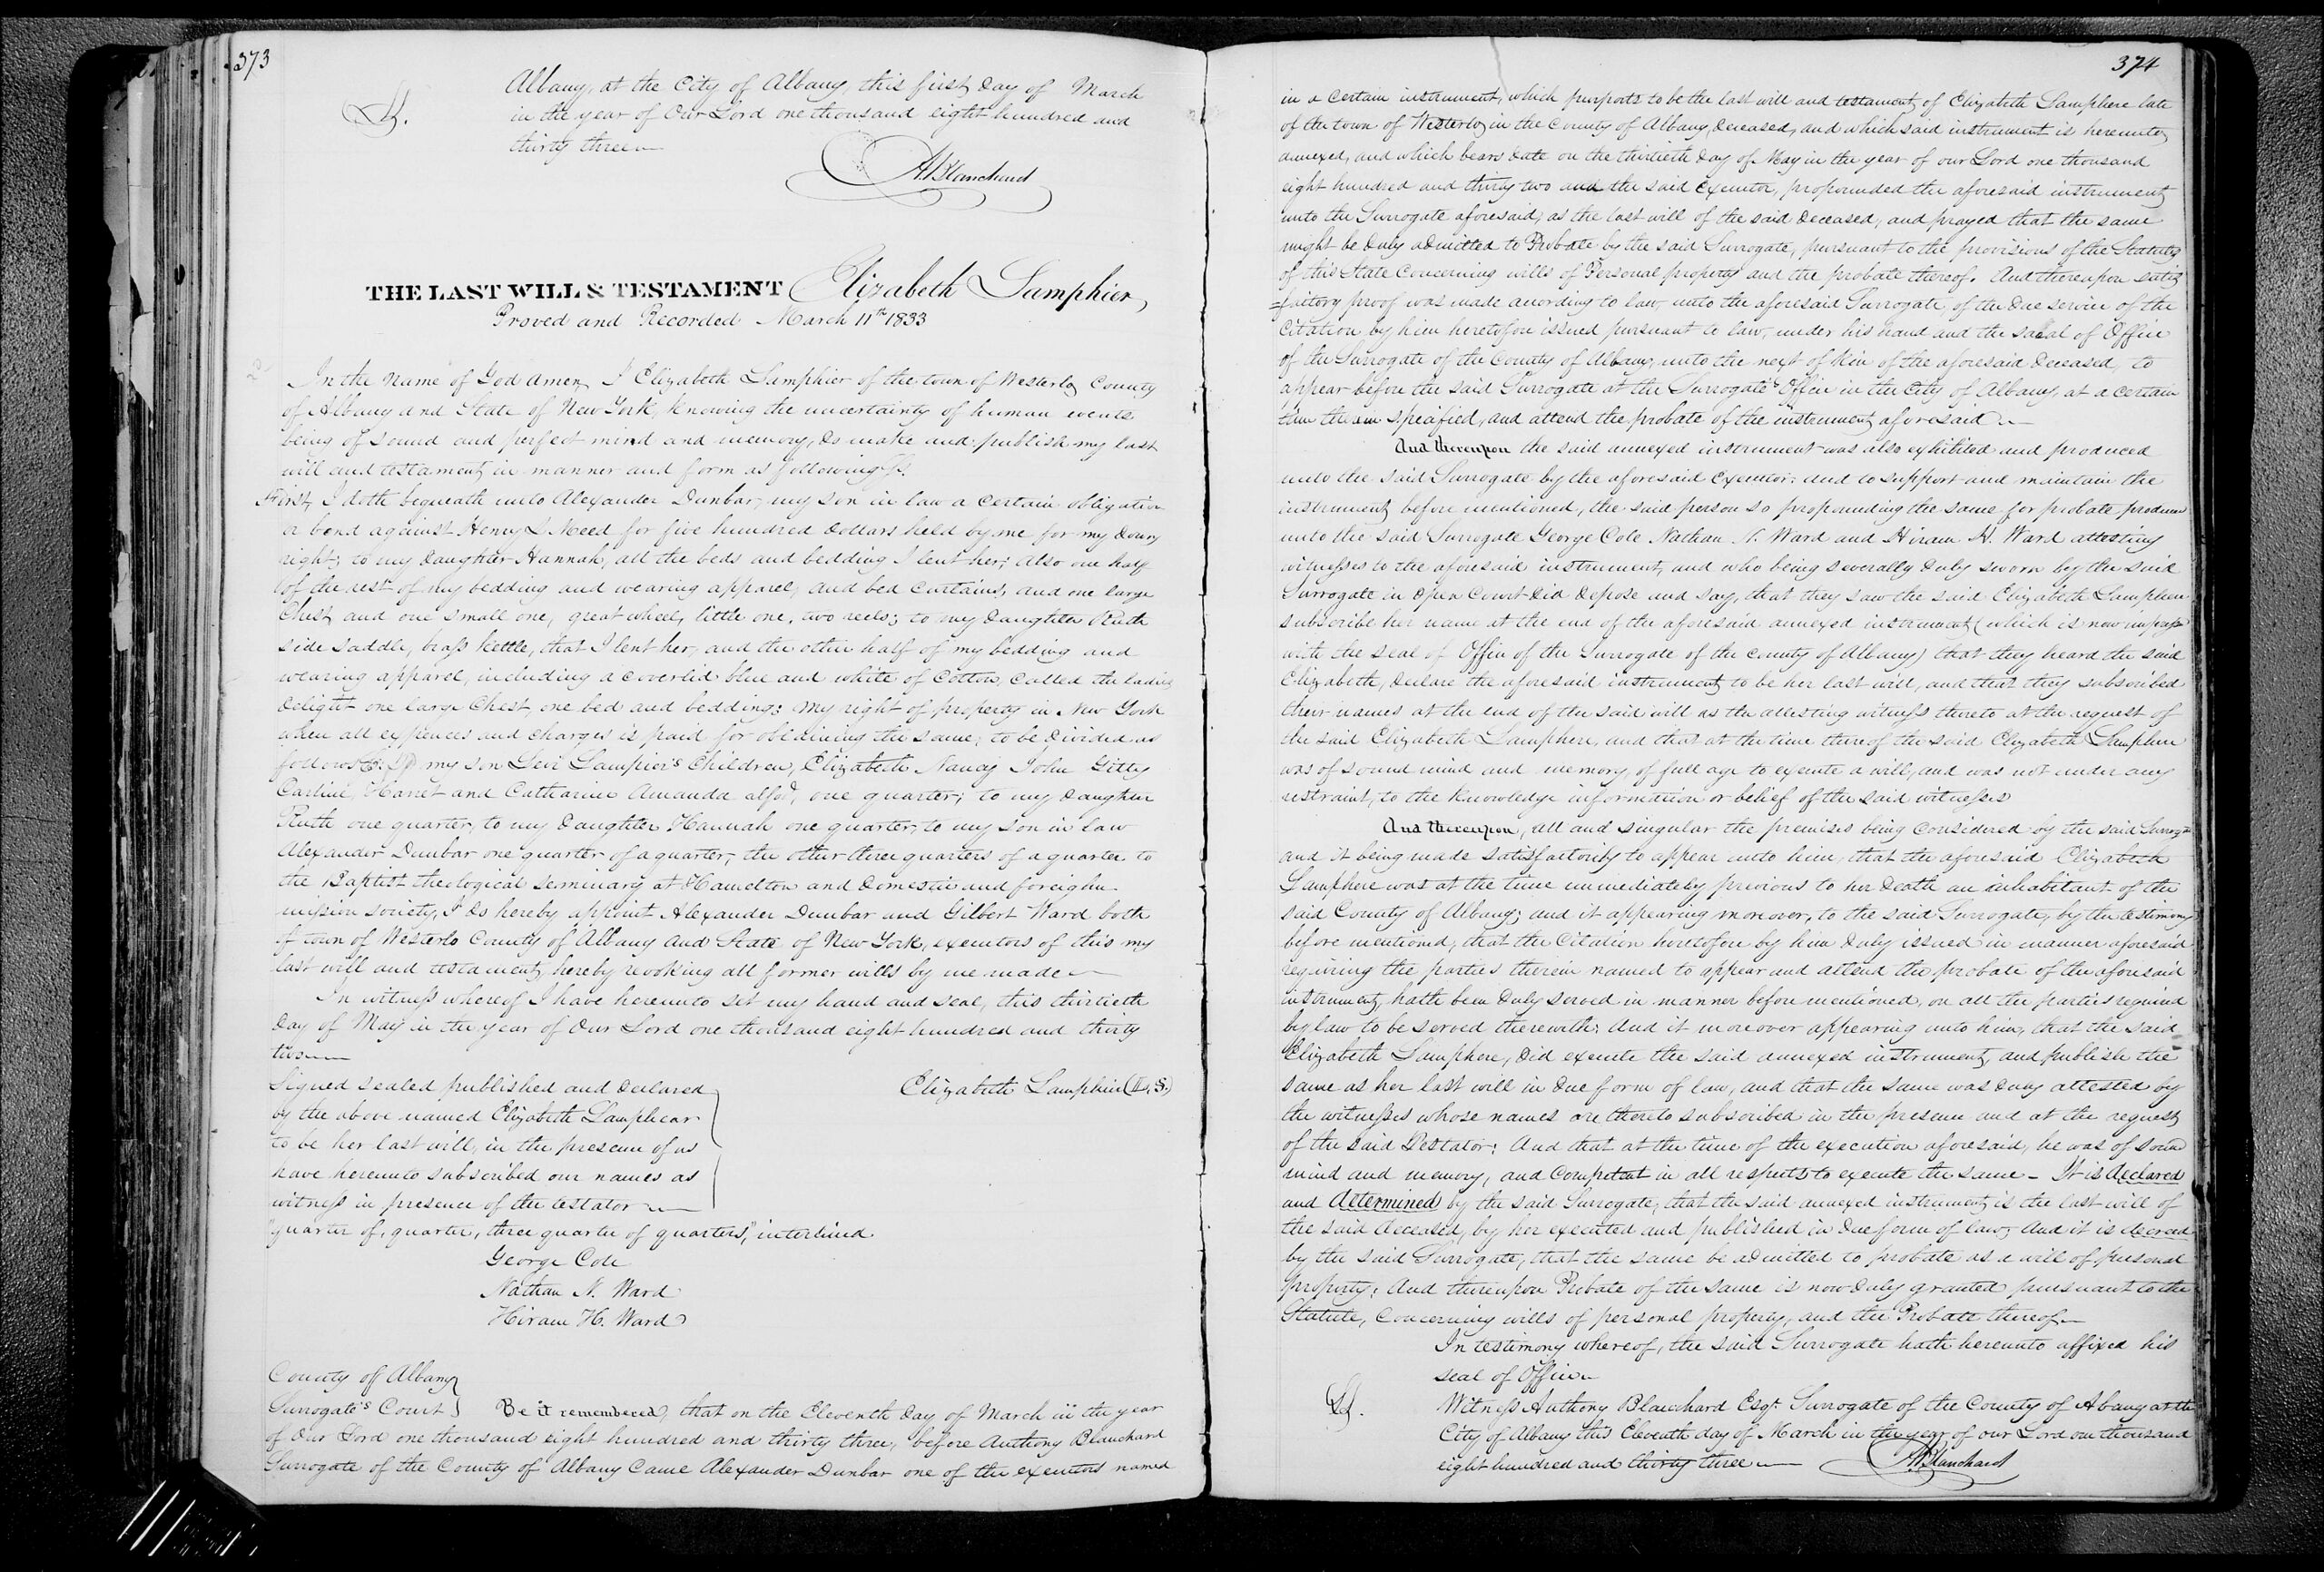 373
Albany, at the City of Albany, this first day of March
in the year of Our Lord one thousand eight hundred and
thirty three
A. Blanchard
THE LAST WILL & TESTAMENT Elizabeth Lamphier,
Proved and Recorded March 11th 1833
In the Name of God Amen, I Elizabeth Lamphier of the town of Westerlo, County
of Albany and State of New York, knowing the uncertainty of human events
being of sound and perfect mind and memory, do make and publish my last
will and testament, in manner and form as following
First, I doth bequeath unto Alexander Dunbar, my son in law a certain obligation
or bond against Henry L Meed for five hundred dollars held by me for my dowry
right; to my daughter Hannah, all the beds and bedding I lent her; also one half
of the rest of my bedding and wearing apparel, and bed curtains, and one large
Chest, and one small one, great wheel, little one, two reels; to my daughter Ruth
side saddle, brass kettle, that I lent her, and the other half of my bedding and
wearing apparel, including a coverlid blue and white of Cotton, called the ladies
delight one large Chest, one bed and bedding; My right of property in New York
when all expences and charges is paid for obtaining the same; to be divided as
follows my son Levi Lampier's Children, Elizabeth Nancy John Gitty
Harret and Catharine Amanda one quarter; to my daughter
Ruth one quarter, to my daughter Hannah one quarter, to my son in law
Alexander Dunbar one quarter of a quarter, the other three quarters of a quarter to
the Baptist theological seminary at Hamelton and domestic and foreighn
mission society, I do hereby appoint Alexander Dunbar and Gilbert Ward both
of town of Westerlo County of Albany and State of New York, executors of this my
last will and testament, hereby revoking all former wills by me made
In witness whereof I have hereunto set my hand and seal, this thirtieth
day of May in the year of Our Lord one thousand eight hundred and thirty
two
Signed sealed published and declared
by the above named Elizabeth Lamphear
to be her last will, in the presence of us
have hereunto subscribed our names as
witness in presence of the testator
Elizabeth Lamphier (L.S.)
"quarter of, quarter, three quarter of quarters," interlined
George Cole
Nathan N. Ward
Hiram H. Ward
County of Albany
Surrogate's Court } Be it remembered, that on the Eleventh day of March in the year
of Our Lord one thousand eight hundred and thirty three, before Anthony Blanchard
Surrogate of the County of Albany Came Alexander Dunbar one of the executors named
374
in a certain instrument, which purports to be the last will and testament, of Elizabeth Lamphere late
of the town of Westerlo, in the County of Albany, deceased, and which said instrument is hereunto
annexed, and which bears date on the thirtieth day of May in the year of our Lord one thousand
eight hundred and thirty two and the said executor, propounded the aforesaid instrument
unto the Surrogate aforesaid, as the last will of the said deceased, and prayed that the same
might be duly admitted to Probate by the said Surrogate, pursuant to the provisions of the Statutes
of this State Concerning wills of Personal property and the probate thereof. And thereupon satis
=factory proof was made according to law, unto the aforesaid Surrogate, of the due service of the
Citation by him heretofore issued pursuant to law, under his hand and the seal of Office
of the Surrogate of the County of Albany, unto the next of Kin of the aforesaid deceased, to
appear before the said Surrogate at the Surrogate's Office in the City of Albany, at a certain
time therein specified, and attend the probate of the instrument aforesaid
And thereupon the said annexed instrument was also exhibited and produced
unto the said Surrogate by the aforesaid executor; and to support and maintain the
instrument, before mentioned, the said person so propounding the same for probate produced
unto the said Surrogate George Cole Nathan N. Ward and Hiram H. Ward attesting
witnesses to the aforesaid instrument, and who being severally duly sworn by the said
Surrogate in open Court did depose and say, that they saw the said Elizabeth Lamphere
subscribe her name at the end of the aforesaid annexed instrument, (which is now impress
with the seal of Office of the Surrogate of the County of Albany) that they heard the said
Elizabeth, declare the aforesaid instrument, to be her last will, and that they subscribed
their names at the end of the said will as the attesting witness thereto at the request of
the said Elizabeth Lamphere, and that at the time thereof the said Elizabeth Lamphere
was of sound mind and memory, of full age to execute a will, and was not under any
restraint, to the knowledge information or belief of the said witnesses
And thereupon, all and singular the premises being considered by the said Surrogte
and it being made satisfactorily to appear unto him, that the aforesaid Elizabeth
Lamphere was at the time immediately previous to her death an inhabitant of the
said County of Albany; and it appearing moreover, to the said Surrogate, by the testimony
before mentioned, that the Citation heretofore by him duly issued in manner aforesaid
requiring the parties therein named to appear and attend the probate of the aforesaid
instrument, hath been duly served in manner before mentioned, on all the parties required
by law to be served therewith; And it moreover appearing unto him, that the said
Elizabeth Lamphere, did execute the said annexed instrument, and publish the
same as her last will in due form of law, and that the same was duly attested by
the witnesses whose names are thereto subscribed in the presence and at the request
of the said Testator; And that at the time of the execution aforesaid, he was of sound
mind and memory, and competent in all respects to execute the same - It is declared
and determined by the said Surrogate, that the said annexed instrument is the last will of
the said deceased, by her executed and published in due form of law; And it is decreed
by the said Surrogate, that the same be admitted to probate as a will of personal
property; And thereupon Probate of the same is now duly granted pursuant to the
Statute, Concerning wills of personal property, and the Probate thereof
In testimony whereof, the said Surrogate hath hereunto affixed his
seal of Office
Witness Anthony Blanchard Esqr. Surrogate of the County of Albany at the
City of Albany this Eleventh day of March in the year of our Lord one thousand
eight hundred and thirty three A. Blanchard